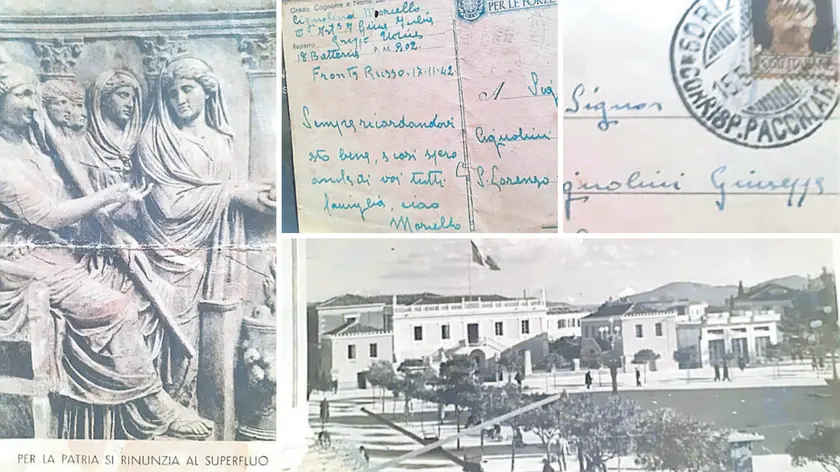 PER LA PATRIA SI RINUNZIA AL SUPERFLUO
Grado, Cognome e Nome
Cignolini Morello
Reparto
18 Batteria P. M. 202.
Fronte Russo. 17-11-42
Sempre ricordandovi
sto bene, e così spero
anche di voi tutti
famiglia, ciao
Morello
PER LE FORZE
A Sig
Cignolini
S. Lorenzo
GORIZ
CORRISP. PACCHI
Signor
gnolini Giuseppe